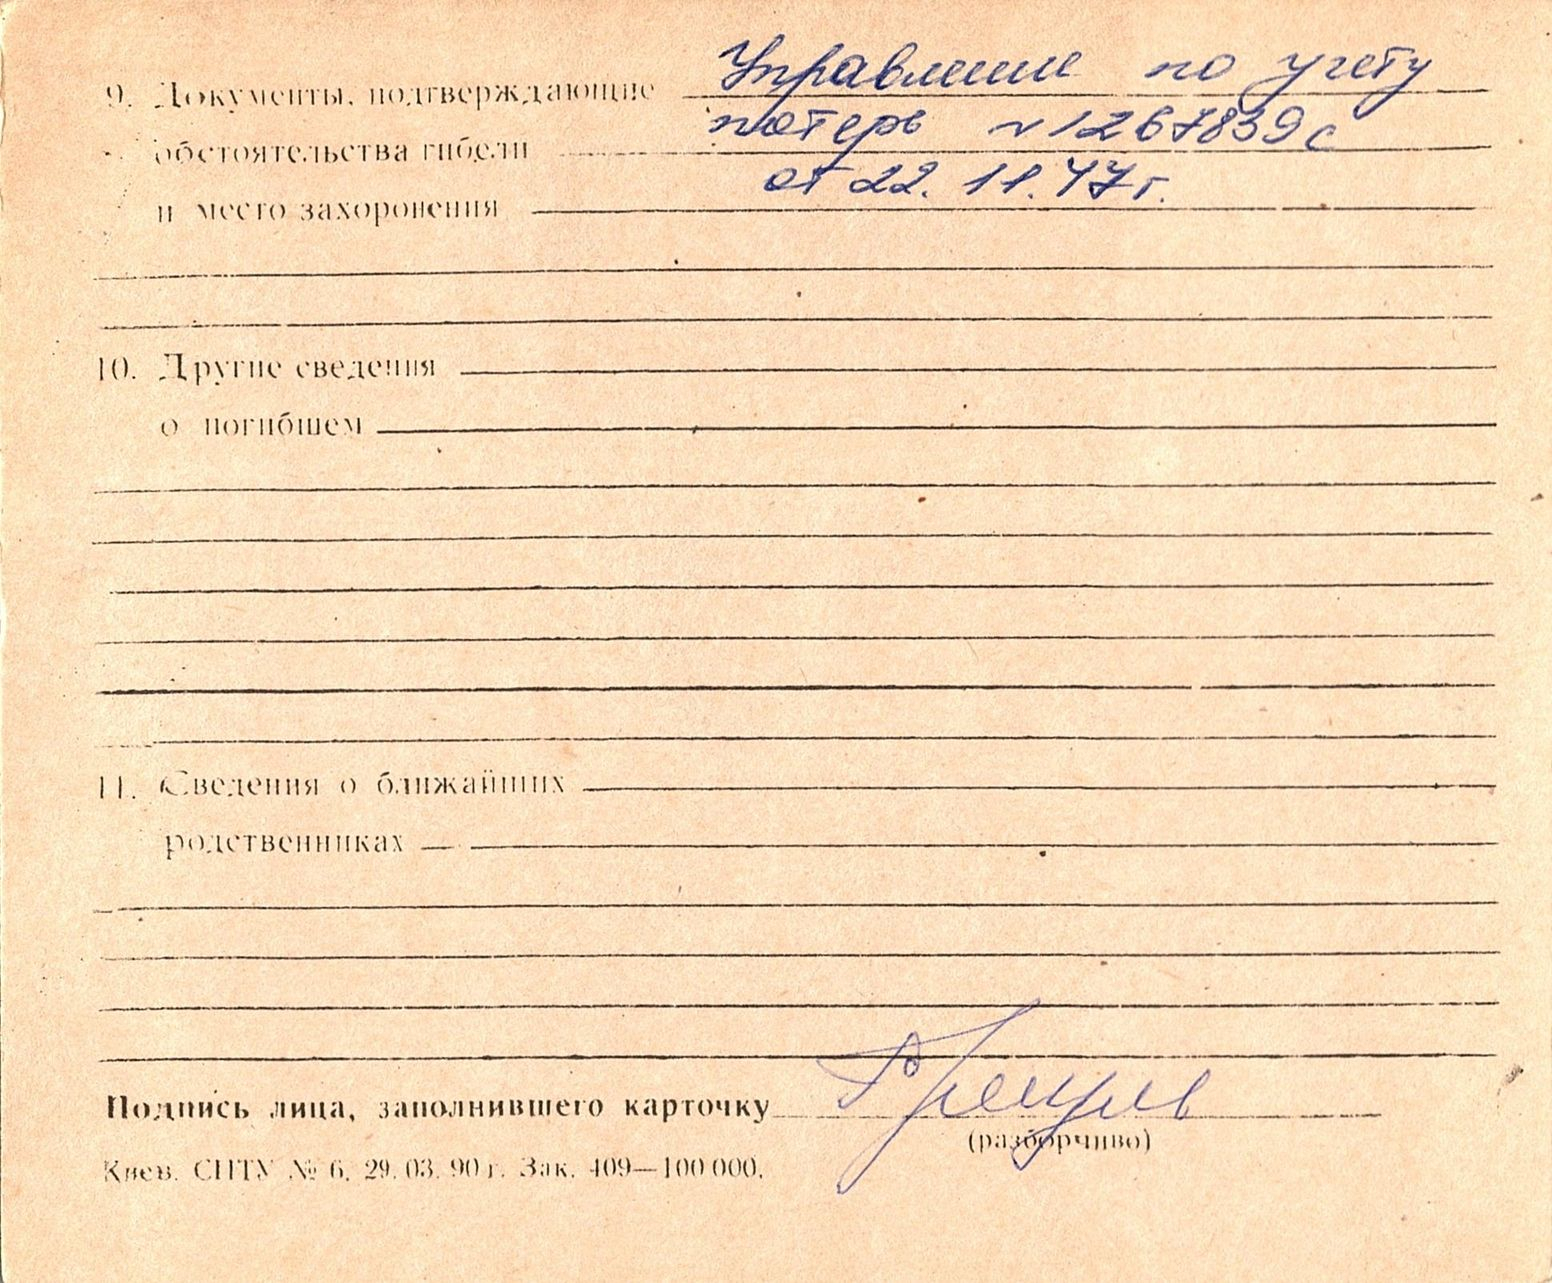 9. Документы, подтверждающие Управление по учету
обстоятельства гибели потерь №1267839с
и место захоронения от 22.11.47г.
10. Другие сведения
о погибшем
11. Сведения о ближайших
родственниках
Подпись лица, заполнившего карточку
(разборчиво)
Киев. СПТУ № 6. 29.03.90 г. Зак. 409—100 000.